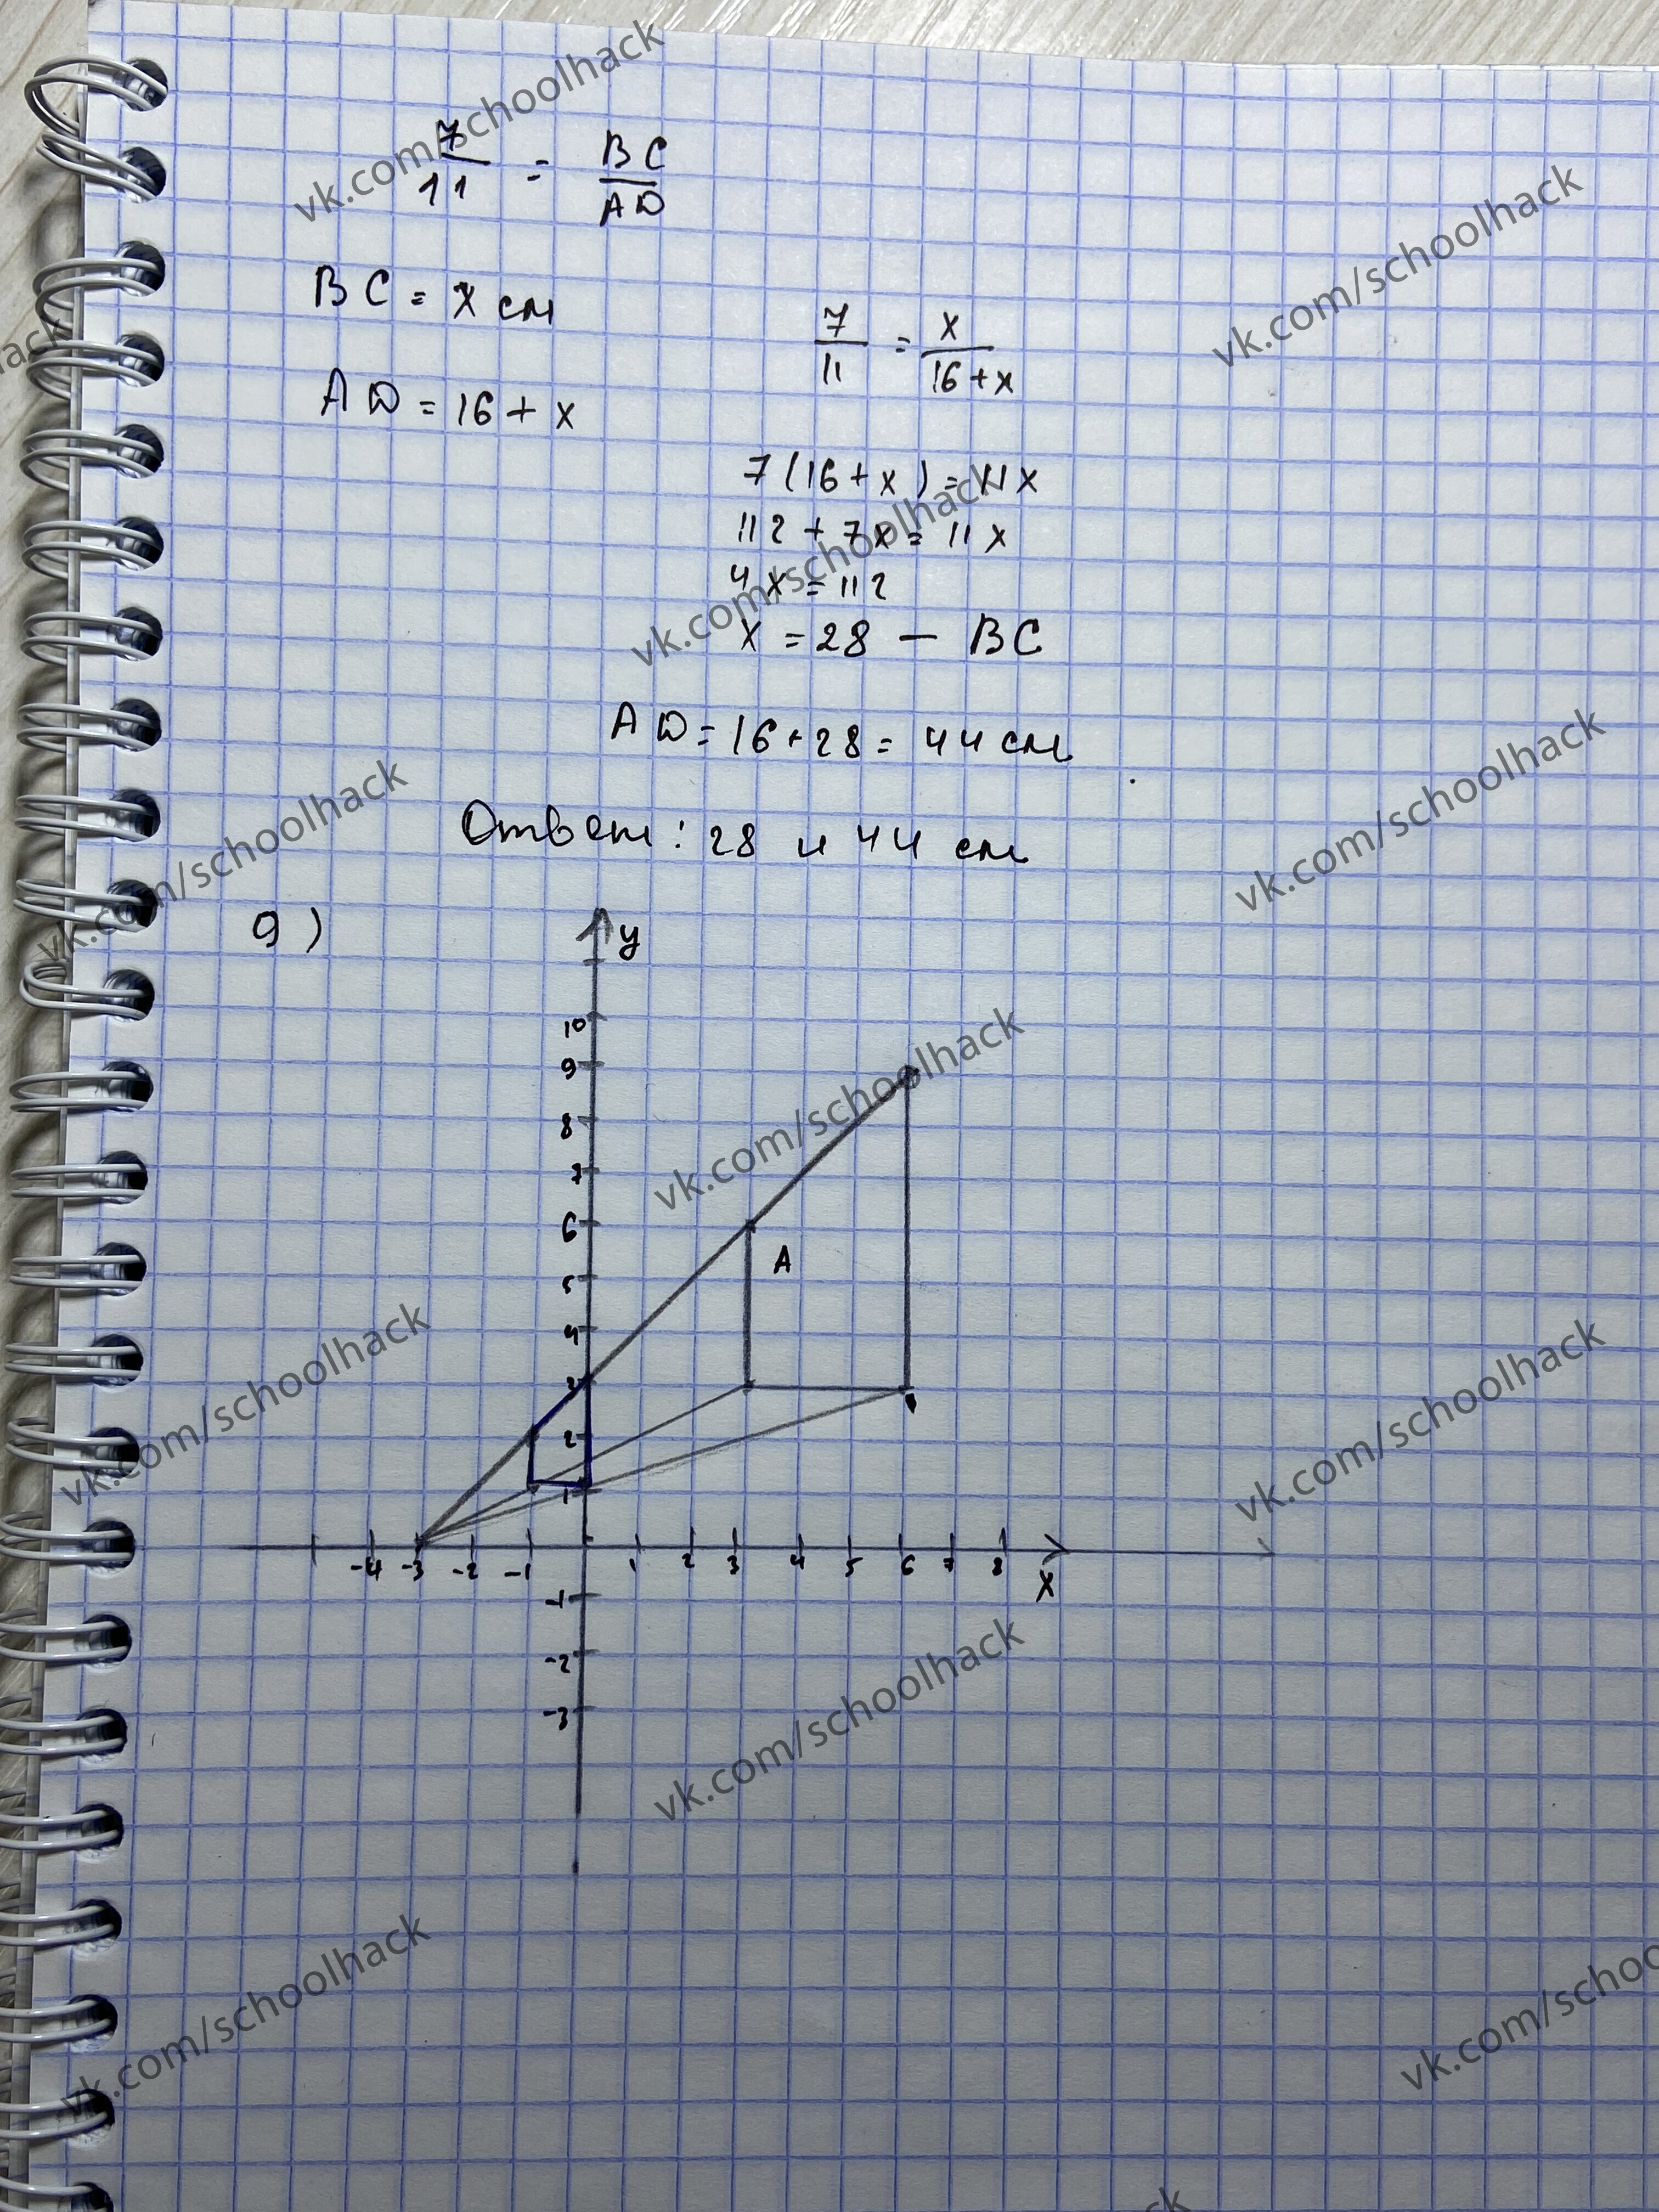 7/11 = BC/AD
BC = x см
7/11 = x/16+x
AD = 16 + x
7(16+x) = 11x
112 + 7x = 11x
4x = 112
x = 28 — BC
AD = 16+28 = 44 см
Ответ: 28 и 44 см
9)
y
10
9
8
7
6
A
5
4
3
2
1
-4 -3 -2 -1 1 2 3 4 5 6 7 8
x
-1
-2
-3
vk.com/schoolhack
vk.com/schoolhack
vk.com/schoolhack
vk.com/schoolhack
vk.com/schoolhack
vk.com/schoolhack
vk.com/schoolhack
vk.com/schoolhack
vk.com/schoolhack
vk.com/schoolhack
vk.com/schoolhack
vk.com/schoo